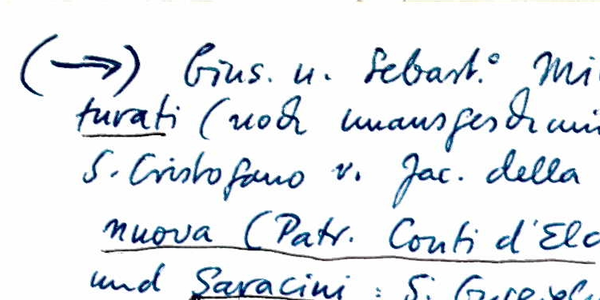 (→) Gius. u. Sebast.° Mi
turati (noch unausgeschmü
S. Cristofano v. Jac. della
nuova (Patr. Conti d'Elc
und Saracini : S.